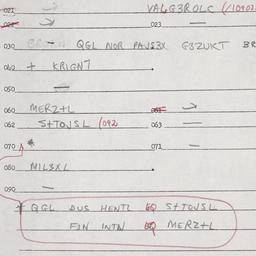 021 VALG3ROLC (/1090?
023 —
030 — QGL NOR PAJS3X G3ZUKT BR
040 + KRIGN7 .
050 —
060 MERZ+L
062 S+TOJSL (092 063 —
070 * 071 —
080 MILSXL .
090 —
+ QGL DUS HENTL EQ S+TOJSL
FIN INTN EQ MERZ+L